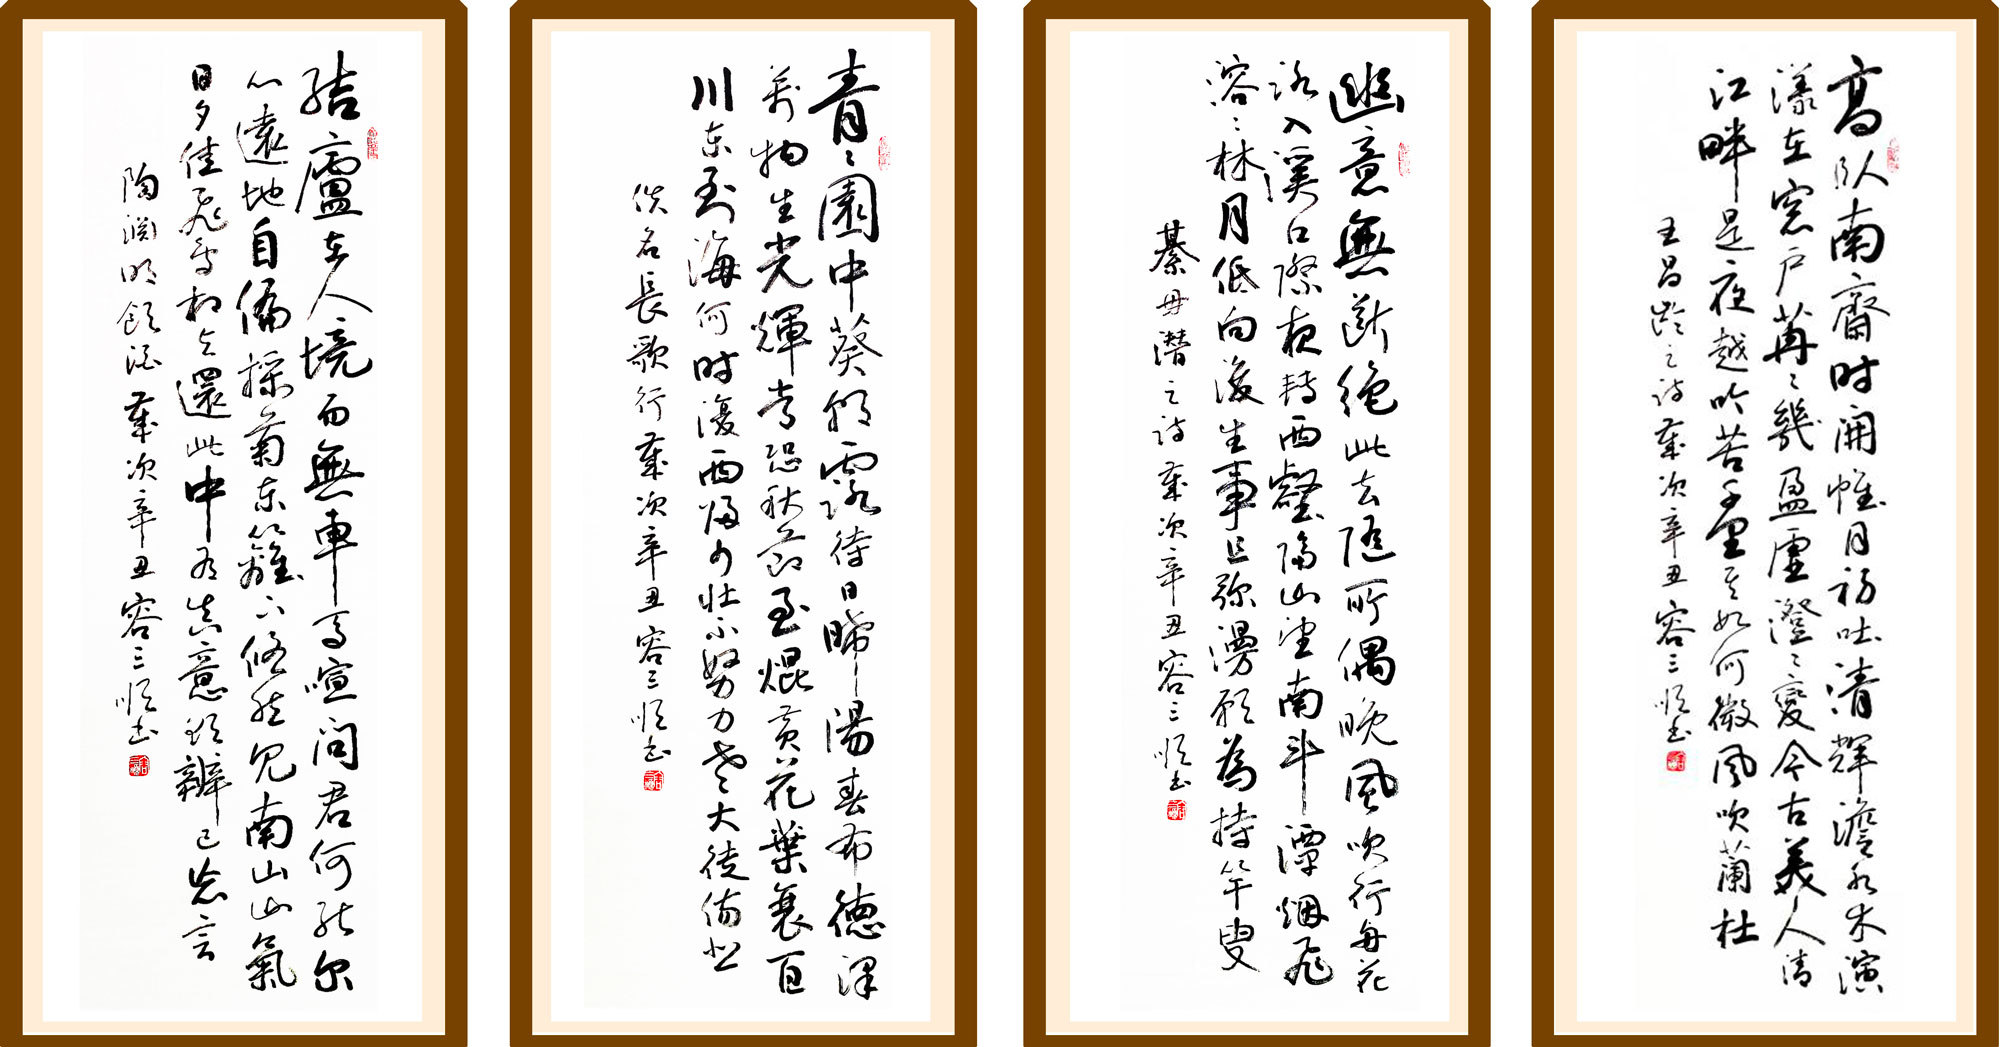 結廬在人境而無車馬喧問君何能尔
心遠地自偏採菊東籬下悠然見南山山氣
日夕佳飛鳥相與還此中有真意欲辨已忘言
陶淵明飲酒歲次辛丑容三順書
青〻園中葵朝露待日晞陽春布德澤
萬物生光輝常恐秋節至焜黃花葉衰百
川東到海何時復西歸少壯不努力老大徒傷悲
佚名長歌行歲次辛丑容三順書
幽意無斷絕此去隨所偶晚風吹行舟花
路入溪口際夜轉西壑隔山望南斗潭烟飛
溶〻林月低向後生事且彌漫願為持竿叟
綦毋潛之詩歲次辛丑容三順書
高臥南齋時開帷月初吐清輝澹水木演
漾在窗戶苒〻幾盈虛澄〻變今古美人清
江畔是夜越吟苦千里其如何微風吹蘭杜
王昌齡之詩歲次辛丑容三順書